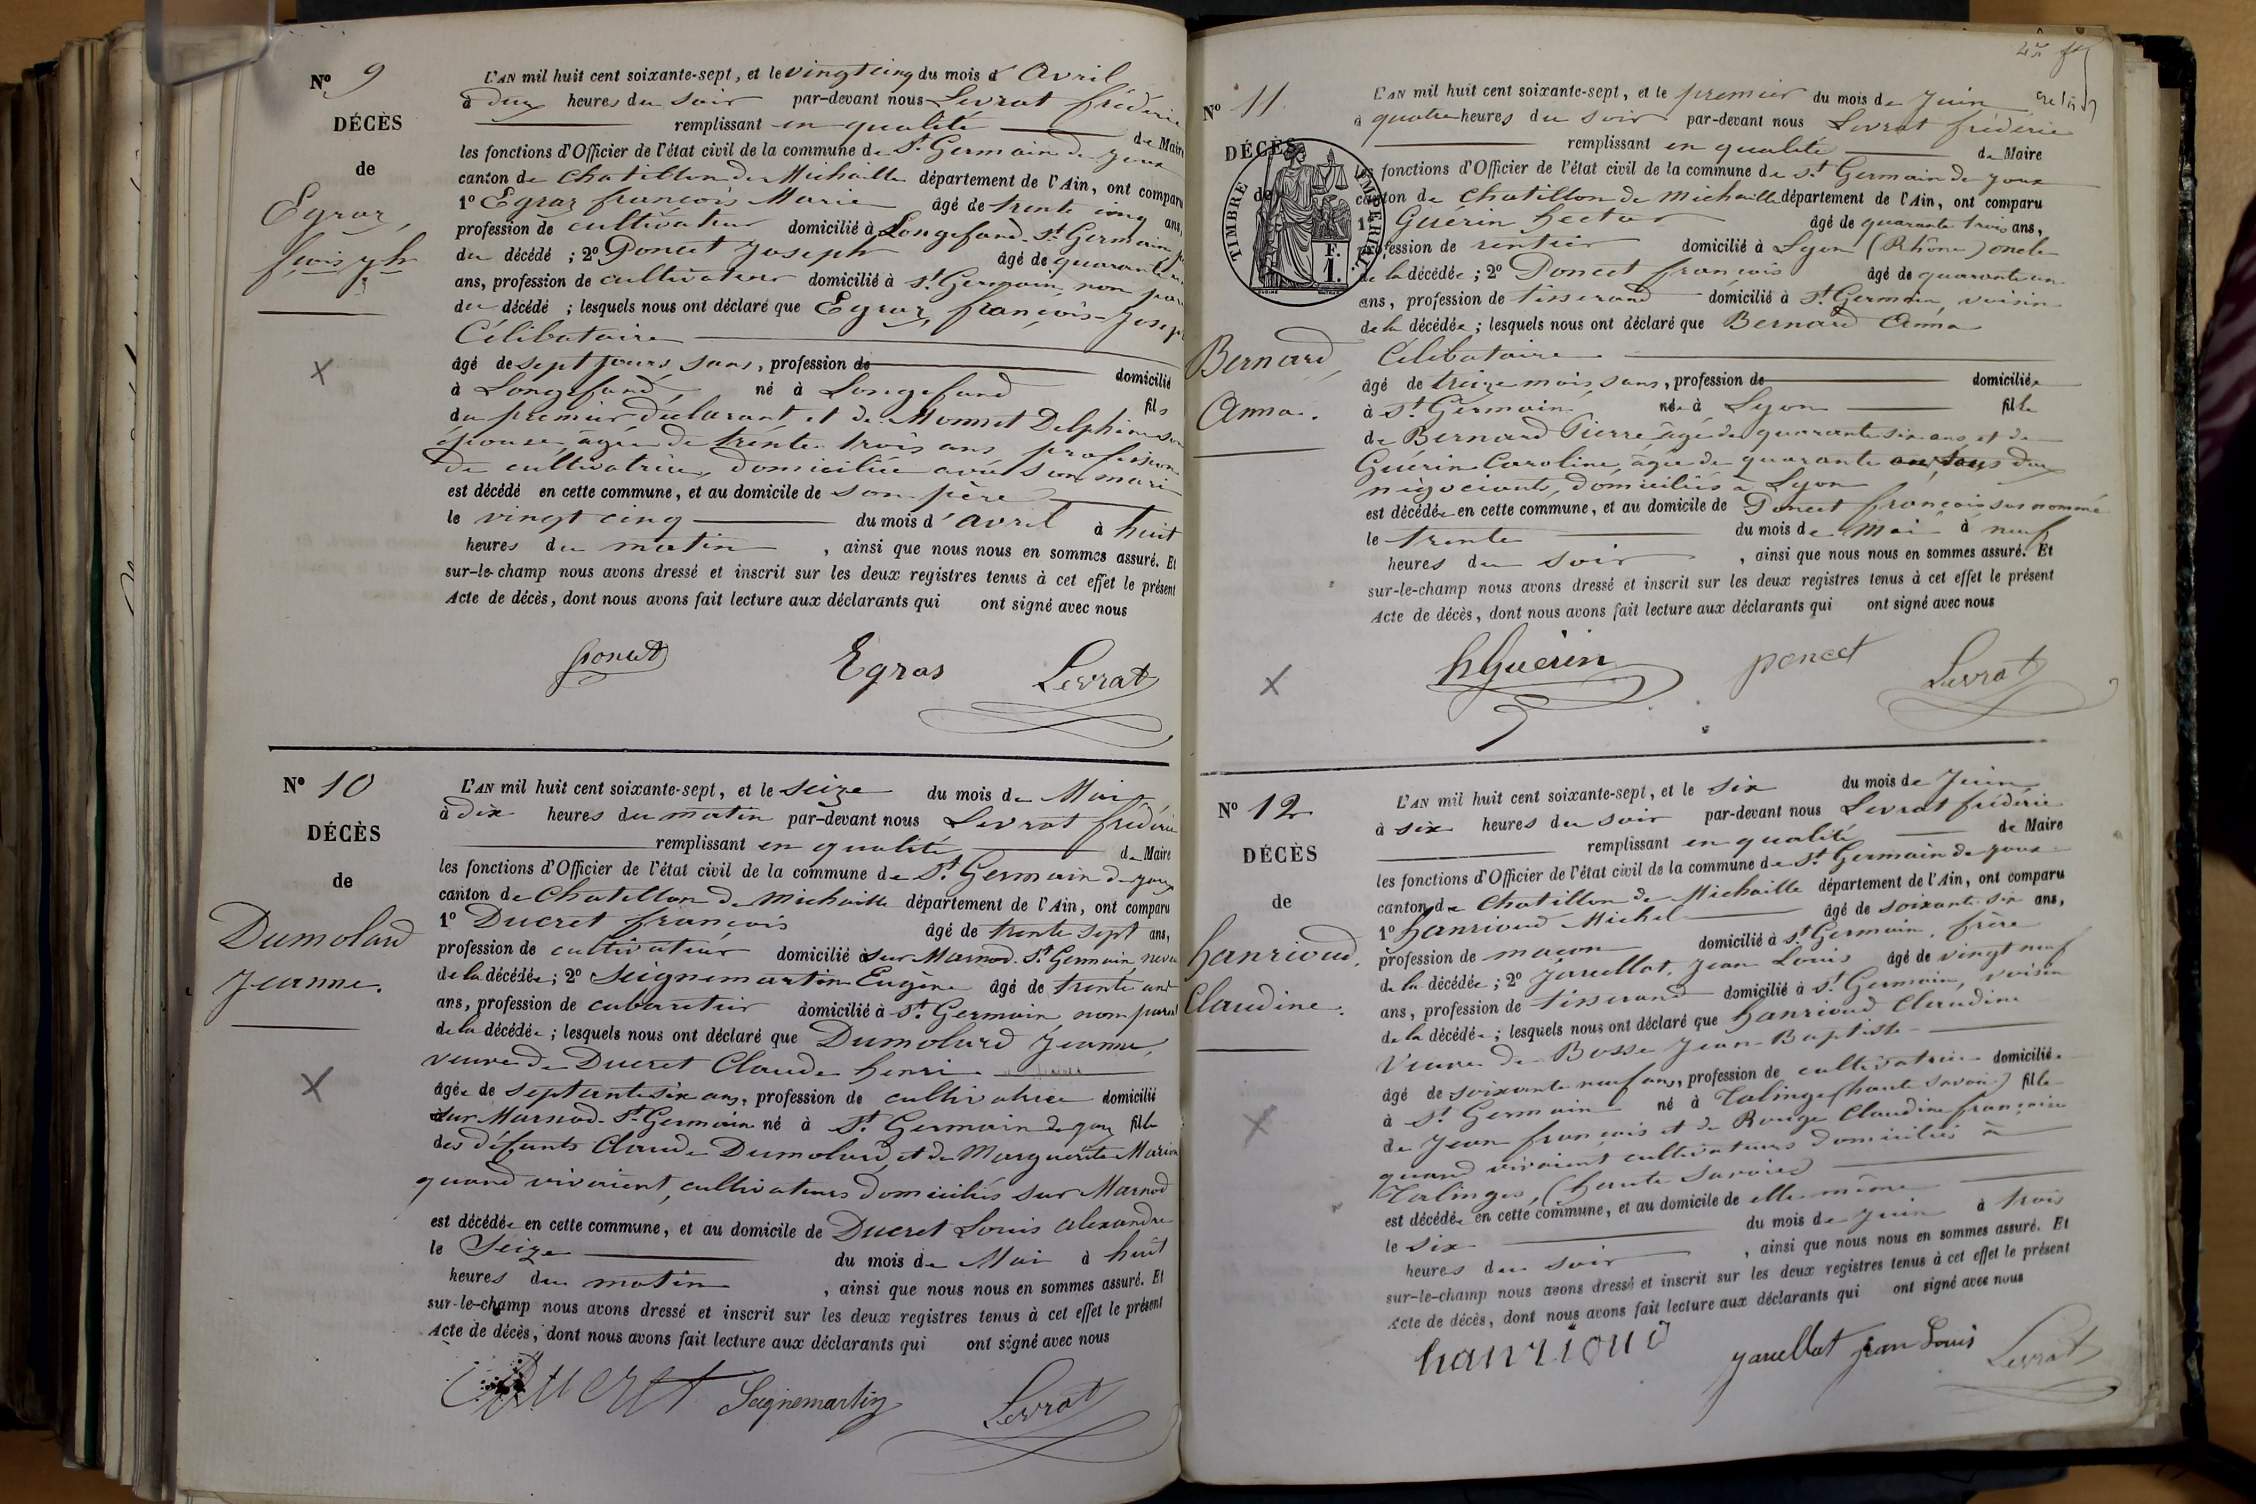 Nº 9
DÉCÈS
de
Egraz,
fçois jph
L'AN mil huit cent soixante-sept, et le vingt cinq du mois d'Avril
à deux heures du soir par-devant nous Levrat frédéric
remplissant en qualité de Maire
les fonctions d'Officier de l'état civil de la commune de St Germain de joux
canton de Chatillon de Michaille département de l'Ain, ont comparu
1º Egraz françois Marie âgé de trente cinq ans,
profession de cultivateur domicilié à Longefand St Germain,
du décédé ; 2º Poncet Joseph âgé de quarante
ans, profession de cultivateur domicilié à St Germain, non parent
du décédé ; lesquels nous ont déclaré que Egraz, françois-Joseph
Célibataire
âgé de sept jours sans, profession de domicilié
à Longefand, né à Longefand fils
du premier déclarant et de Monnet Delphine son
épouse, âgée de trente trois ans profession
de cultivatrice, domiciliée avec son mari
est décédé en cette commune, et au domicile de son père
le vingt cinq du mois d'avril à huit
heures du matin, ainsi que nous nous en sommes assuré. Et
sur-le-champ nous avons dressé et inscrit sur les deux registres tenus à cet effet le présent
Acte de décès, dont nous avons fait lecture aux déclarants qui ont signé avec nous
poncet Egras Levrat
Nº 10
DÉCÈS
de
Dumolard
Jeanne.
L'AN mil huit cent soixante-sept, et le seize du mois de Mai
à dix heures du matin par-devant nous Levrat frédéric
remplissant en qualité de Maire
les fonctions d'Officier de l'état civil de la commune de St Germain de joux
canton de Chatillon de Michaille département de l'Ain, ont comparu
1º Ducret françois âgé de trente sept ans,
profession de cultivateur domicilié à sur Marnod. St Germain, neveu
de la décédée ; 2º Seignemartin Eugène âgé de trente
ans, profession de cabaretier domicilié à St Germain non parent
de la décédée ; lesquels nous ont déclaré que Dumolard Jeanne,
veuve de Ducret Claude henri
âgée de septante six ans, profession de cultivatrice domicilié
sur Marnod. St Germain né à St Germain de joux fille
des défunts Claude Dumolard, et de Marguerite Marion
quand vivaient, cultivateurs domiciliés sur Marnod
est décédée en cette commune, et au domicile de Ducret Louis alexandre
le Seize du mois de Mai à huit
heures du matin, ainsi que nous nous en sommes assuré. Et
sur-le-champ nous avons dressé et inscrit sur les deux registres tenus à cet effet le présent
Acte de décès, dont nous avons fait lecture aux déclarants qui ont signé avec nous
Ducret Seignemartin Levrat
Nº 11
DÉCÈS
de
TIMBRE IMPÉRIAL
F.
1.
Bernard,
Anna.
L'AN mil huit cent soixante-sept, et le premier du mois de Juin
à quatre heures du soir par-devant nous Levrat frédéric
remplissant en qualité de Maire
les fonctions d'Officier de l'état civil de la commune de St Germain de joux
canton de Chatillon de Michaille département de l'Ain, ont comparu
1º Guérin hector âgé de quarante trois ans,
profession de rentier domicilié à Lyon (Rhône) oncle
de la décédée ; 2º Poncet françois âgé de quarante un
ans, profession de tisserand domicilié à St Germain, voisin
de la décédée ; lesquels nous ont déclaré que Bernard Anna
Célibataire
âgé de treize mois, sans, profession de domiciliée
à St Germain née à Lyon fille
de Bernard Pierre âgé de quarante six ans et de
Guérin Caroline, âgée de quarante ans, tous deux
négociants, domiciliés à Lyon
est décédée en cette commune, et au domicile de Poncet françois sus nommé
le trente du mois de Mai à neuf
heures du soir, ainsi que nous nous en sommes assuré. Et
sur-le-champ nous avons dressé et inscrit sur les deux registres tenus à cet effet le présent
Acte de décès, dont nous avons fait lecture aux déclarants qui ont signé avec nous
hGuérin poncet Levrat
Nº 12
DÉCÈS
de
hanrioud,
Claudine.
L'AN mil huit cent soixante-sept, et le six du mois de Juin
à six heures du soir par-devant nous Levrat frédéric
remplissant en qualité de Maire
les fonctions d'Officier de l'état civil de la commune de St Germain de joux
canton de Chatillon de Michaille département de l'Ain, ont comparu
1º hanrioud Michel âgé de soixante six ans,
profession de maçon domicilié à St Germain, frère
de la décédée ; 2º Jarcellat, Jean Louis âgé de vingt neuf
ans, profession de tisserand domicilié à St Germain, voisin
de la décédée ; lesquels nous ont déclaré que hanrioud Claudine
Veuve de Bosse Jean-Baptiste
âgé de soixante neuf ans, profession de cultivatrice domiciliée
à St Germain né à Talinge (haute Savoie) fille
de Jean françois et de Rouge Claudine françoise
quand vivaient cultivateurs domiciliés à
Talinges, (haute Savoie)
est décédée en cette commune, et au domicile de elle même
le six du mois de juin à trois
heures du soir, ainsi que nous nous en sommes assuré. Et
sur-le-champ nous avons dressé et inscrit sur les deux registres tenus à cet effet le présent
Acte de décès, dont nous avons fait lecture aux déclarants qui ont signé avec nous
hanrioud jarcellat jean Louis Levrat